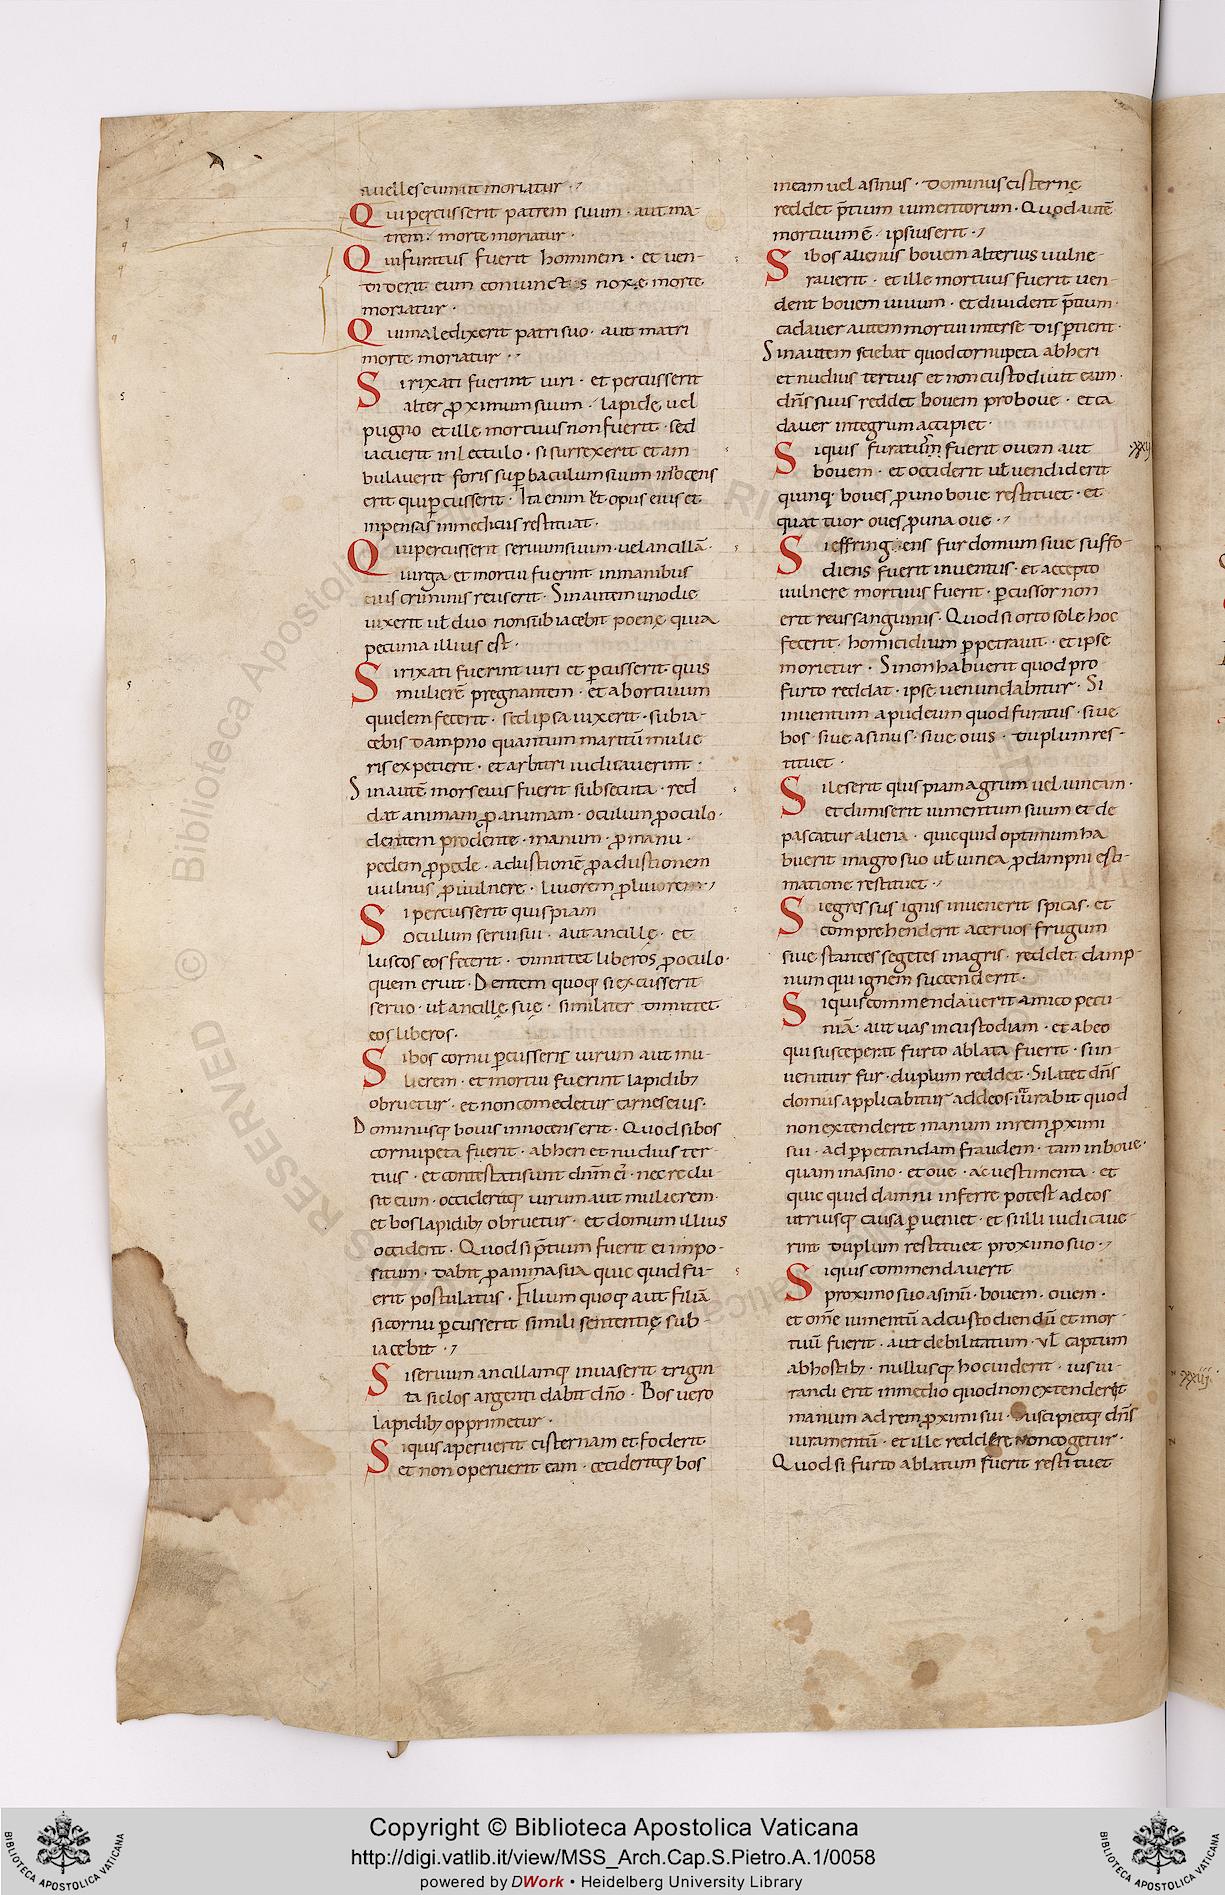 avelles eum ut moriatur ·
Qui pęrcusserit patrem suum · aut ma-
trem · morte moriatur ·
Qui furatus fuerit hominem · et ven-
diderit eum convinctus noxe morte
moriatur ·
Qui maledixerit patri suo · aut matri
morte moriatur ·
Si rixati fuerint viri · et percusserit
alter ꝓximum suum · lapide vel
pugno et ille mortuus non fuerit · sed
iacuerit in lectulo · si surrexerit et am
bulaverit foris suꝑ baculum suum innocens
erit qui ꝑcusserit · Ita enim ut opus eius et
inpensas in medicus restituat ·
Qui percusserit servum suum · vel ancillā ·
virga et mortui fuerint in manibus
eius criminis reus erit · Sin autem uno die
vixerit ul̄ duo non subiacebit poenę quia
pecunia illius est ·
Si rixati fuerint viri et ꝑcusserit quis
mulierē pregnantem · et abortivum
quidem fecerit · sed ipsa vixerit · subia-
cebit dampno quantum maritū mulie
ris expetierit · et arbitri iudicaverint ·
Sin autē mors eius fuerit subsecuta · red
dat animam ꝓ animam · oculum ꝓ oculo ·
dentem pro dente · manum · ꝓ manu ·
pedem ꝓ pede · adustionē ꝓ adustionem
vulnus ꝓ vulnere · livorem ꝓ livorem ·
Si percusserit quispiam
oculum servi sui · aut ancillę · et
luscos eos fecerit · dimittet liberos ꝓ oculo ·
quem eruit · Dentem quoq; si excusserit
servo · ul̄ ancillę suę · similiter dimittet
eos liberos ·
Si bos cornu ꝑcusserit virum aut mu-
lierem · et mortui fuerint lapidib;
obruetur · et non comedetur carnes eius ·
Dominusq; bovis innocens erit · Quod si bos
cornupeta fuerit · ab heri et nudius ter-
tius · et contestati sunt dn̄m ei · nec reclu
sit eum · occideritq; virum aut mulierem ·
et bos lapidib; obruetur · et domum illius
occident · Quod si p̄tium fuerit ei impo-
situm · dabit ꝓ anima sua quic quid fu-
erit postulatus · Filium quoq; aut filiā
si cornu ꝑcusserit simili sententię sub-
iacebit ·
Si servum ancillamq; invaserit trigin
ta siclos argenti dabit dn̄o · Bos vero
lapidib; opprimetur ·
Si quis aperuerit cisternam et foderit
et non operuerit eam · cecideritq; bos
in eam vel asinus · dominus cisternę
reddet p̄tium iumentorum · Quod autē
mortuum ē · ipsius erit ·
Si bos alienus bovem alterius vulne-
raverit · et ille mortuus fuerit ven-
dent bovem vivum · et divident p̄tium ·
cadaver autem mortui inter se disꝑtient ·
Sin autem sciebat quod cornupeta ab heri
et nudius tertius et non custodivit eum ·
dn̄s suus reddet bovem pro bove · et ca
daver integrum accipiet ·
Si quis furatus fuerit ovem aut
bovem · et occiderit ul̄ vendiderit
quinq; boves ꝓ uno bove restituet · et
quattuor oves ꝓ una ove ·
·xxij
Si effringens fur domum sive suffo-
diens fuerit inventus · et accepto
vulnere mortuus fuerit · ꝑcussor non
erit reus sanguinis · Quod si orto sole hoc
fecerit · homicidium ꝑpetravit · et ipse
morietur · Si non habuerit quod pro
furto reddat · ipse venundabitur · Si
inventum apud eum quod furatus · sive
bos · sive asinus · sive ovis · duplum res-
tituet ·
Si leserit quispiam agrum vel vineam ·
et dimiserit iumentum suum et de
pascatur aliena · quicquid optimum ha
buerit in agro suo ul̄ vinea ꝓ dampni esti-
matione restituet ·
Si egressus ignis invenerit spicas · et
comprehenderit acervos frugum
sive stantes segetes in agris · reddet damp-
num qui ignem succenderit ·
Si quis commendaverit amico pecu-
niā · aut vas in custodiam · et ab eo
qui susceperat furto ablata fuerit · si in
venitur fur · duplum reddet · Si latet dn̄s
domus applicabitur ad deos · iurabit quod
non extenderit manum in rem ꝓximi
sui · ad ꝑpetrandam fraudem · tam in bove ·
quam in asino · et ove · ac vestimenta · et
quic quid damni inferre potest ad eos
utriusq; causa ꝑveniet · et si illi iudicave-
rint duplum restituet proximo suo ·
Si quis commendaverit
proximo suo asinū · bovem · ovem ·
et om̄e iumentū ad custodiendū et mor-
tuū fuerit · aut debilitatum · ul̄ captum
ab hostib; · nullusq; hoc viderit · ius iu-
randi erit in medio quod non extenderit
manum ad rem ꝓximi sui · suscipietq; dn̄s
iuramentū · et ille reddere non cogetur ·
Quod si furto ablatum fuerit restituet
·xxiij·
Copyright © Biblioteca Apostolica Vaticana
http://digi.vatlib.it/view/MSS_Arch.Cap.S.Pietro.A.1/0058
powered by DWork • Heidelberg University Library
BIBLIOTECA APOSTOLICA VATICANA
BIBLIOTECA APOSTOLICA VATICANA